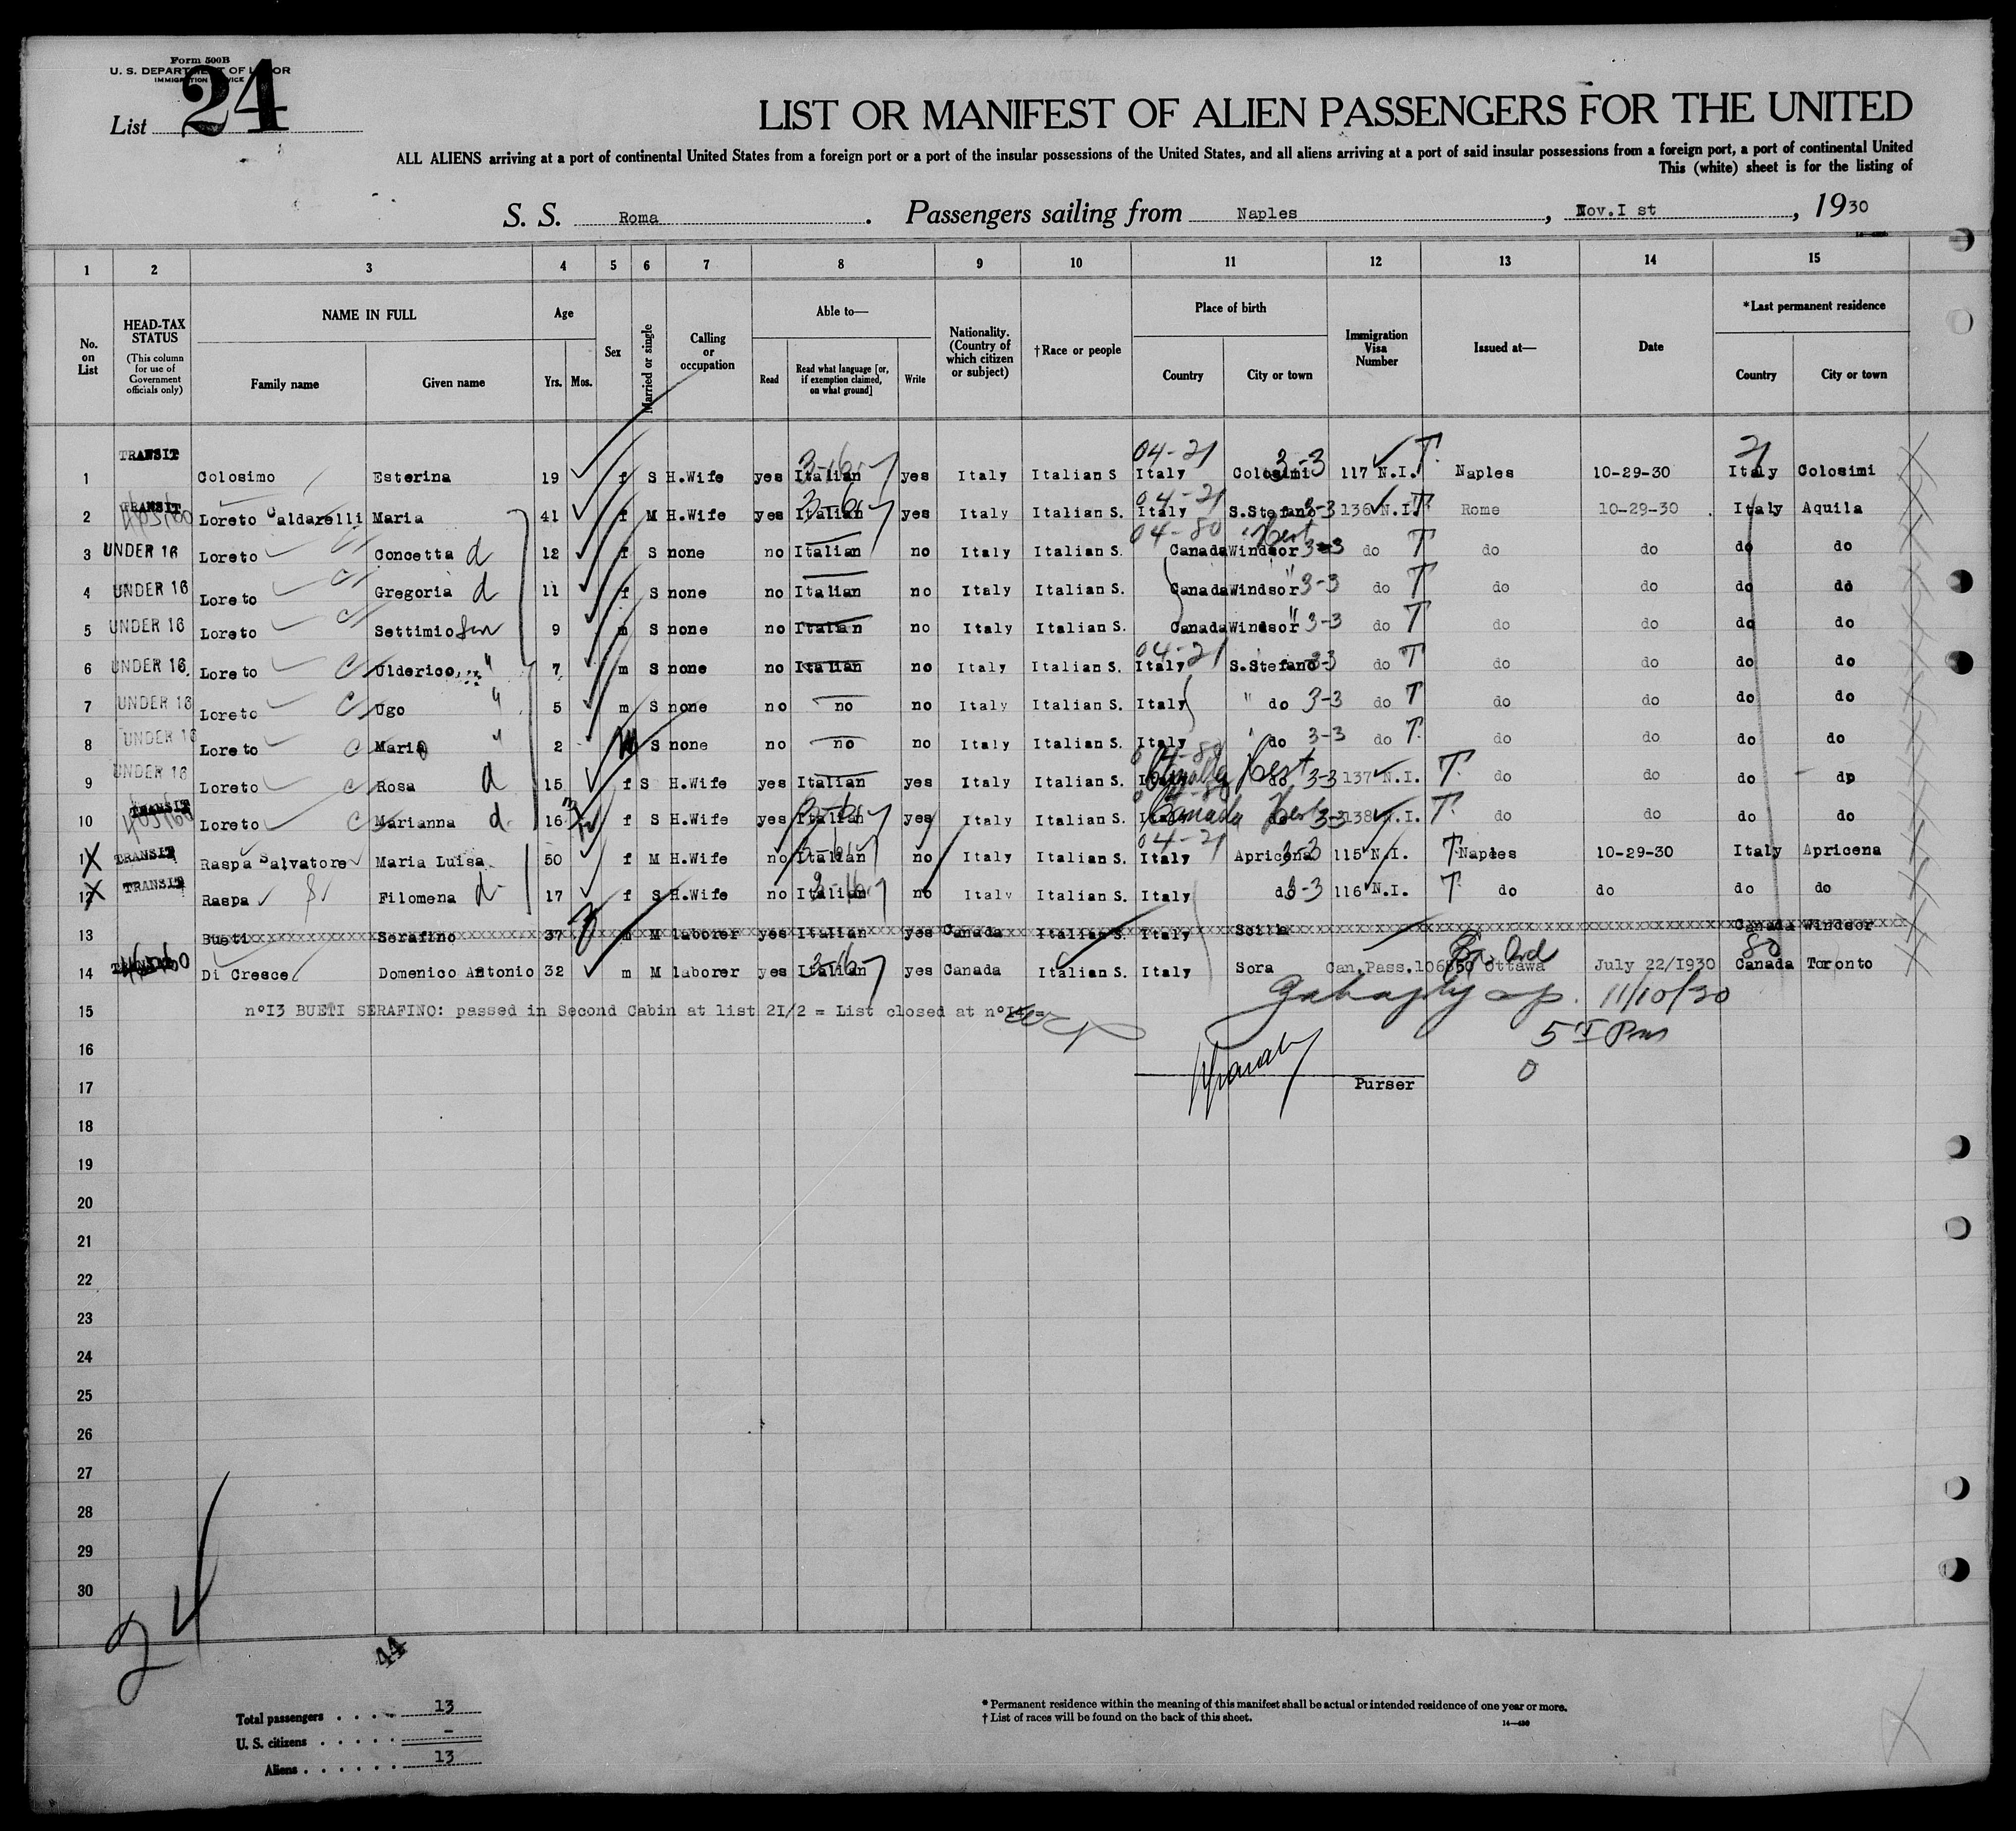 Form 500B
U. S. DEPARTMENT OF LABOR
IMMIGRATION SERVICE
List 24
LIST OR MANIFEST OF ALIEN PASSENGERS FOR THE UNITED
ALL ALIENS arriving at a port of continental United States from a foreign port or a port of the insular possessions of the United States, and all aliens arriving at a port of said insular possessions from a foreign port, a port of continental United
This (white) sheet is for the listing of
S. S. Roma. Passengers sailing from Naples, Nov. I st, 1930
1 2 3 4 5 6 7 8 9 10 11 12 13 14 15
No. on List
HEAD-TAX STATUS (This column for use of Government officials only)
NAME IN FULL Family name Given name
Age Yrs. Mos.
Sex
Married or single
Calling or occupation
Able to— Read Read what language [or, if exemption claimed, on what ground] Write
Nationality. (Country of which citizen or subject)
†Race or people
Place of birth Country City or town
Immigration Visa Number
Issued at—
Date
*Last permanent residence Country City or town
1 TRANSIT Colosimo Esterina 19 f S H.Wife yes Italian 3-16-7 yes Italy Italian S 04-21 Italy Colosimi 3-3 117 N.I. T Naples 10-29-30 21 Italy Colosimi
2 TRANSIT Loreto Caldarelli Maria 41 f M H.Wife yes Italian yes Italy Italian S. 04-21 Italy S.Stefano 3-3 136 N.I. T Rome 10-29-30 Italy Aquila
3 UNDER 16 Loreto Concetta d 12 f S none no Italian no Italy Italian S. 04-80 Canada Windsor 3-3 do T do do do do
4 UNDER 16 Loreto Gregoria d 11 f S none no Italian no Italy Italian S. Canada Windsor " 3-3 do T do do do do
5 UNDER 16 Loreto Settimio Son 9 m S none no Italian no Italy Italian S. Canada Windsor " 3-3 do T do do do do
6 UNDER 16 Loreto Ulderico " 7 m S none no Italian no Italy Italian S. 04-21 Italy S.Stefano 3-3 do T do do do do
7 UNDER 16 Loreto Ugo " 5 m S none no no no Italy Italian S. Italy " do 3-3 do T do do do do
8 UNDER 16 Loreto Mario " 2 M S none no no no Italy Italian S. Italy " do 3-3 do T do do do do
9 UNDER 16 Loreto Rosa d 15 f S H.Wife yes Italian yes Italy Italian S. 04-80 do 3-3 137 N.I. T do do do do
10 TRANSIT Loreto Marianna d 16 f S H.Wife yes Italian yes Italy Italian S. Canada 3-3 138 N.I. T do do do do
11 X TRANSIT Raspa Salvatore Maria Luisa 50 f M H.Wife no Italian no Italy Italian S. 04-21 Italy Apricena 3-3 115 N.I. T Naples 10-29-30 Italy Apricena
12 X TRANSIT Raspa Filomena d 17 f S H.Wife no Italian 3-16-7 no Italy Italian S. Italy do 3-3 116 N.I. T do do do do
13 Bueti Serafino 37 m M laborer yes Italian yes Canada Italian S. Italy Scilla Canada Windsor
14 TRANSIT Di Cresce Domenico Antonio 32 m M laborer yes Italian 3-16-7 yes Canada Italian S. Italy Sora Can.Pass.106850 Ottawa July 22/1930 80 Canada Toronto
11/10/30
15 n°I3 BUETI SERAFINO: passed in Second Cabin at list 2I/2 = List closed at n°I4 =
16
17 Purser 0
18
19
20
21
22
23
24
25
26
27
28
29
30
24
44
Total passengers 13
U. S. citizens –
Aliens 13
* Permanent residence within the meaning of this manifest shall be actual or intended residence of one year or more.
† List of races will be found on the back of this sheet.